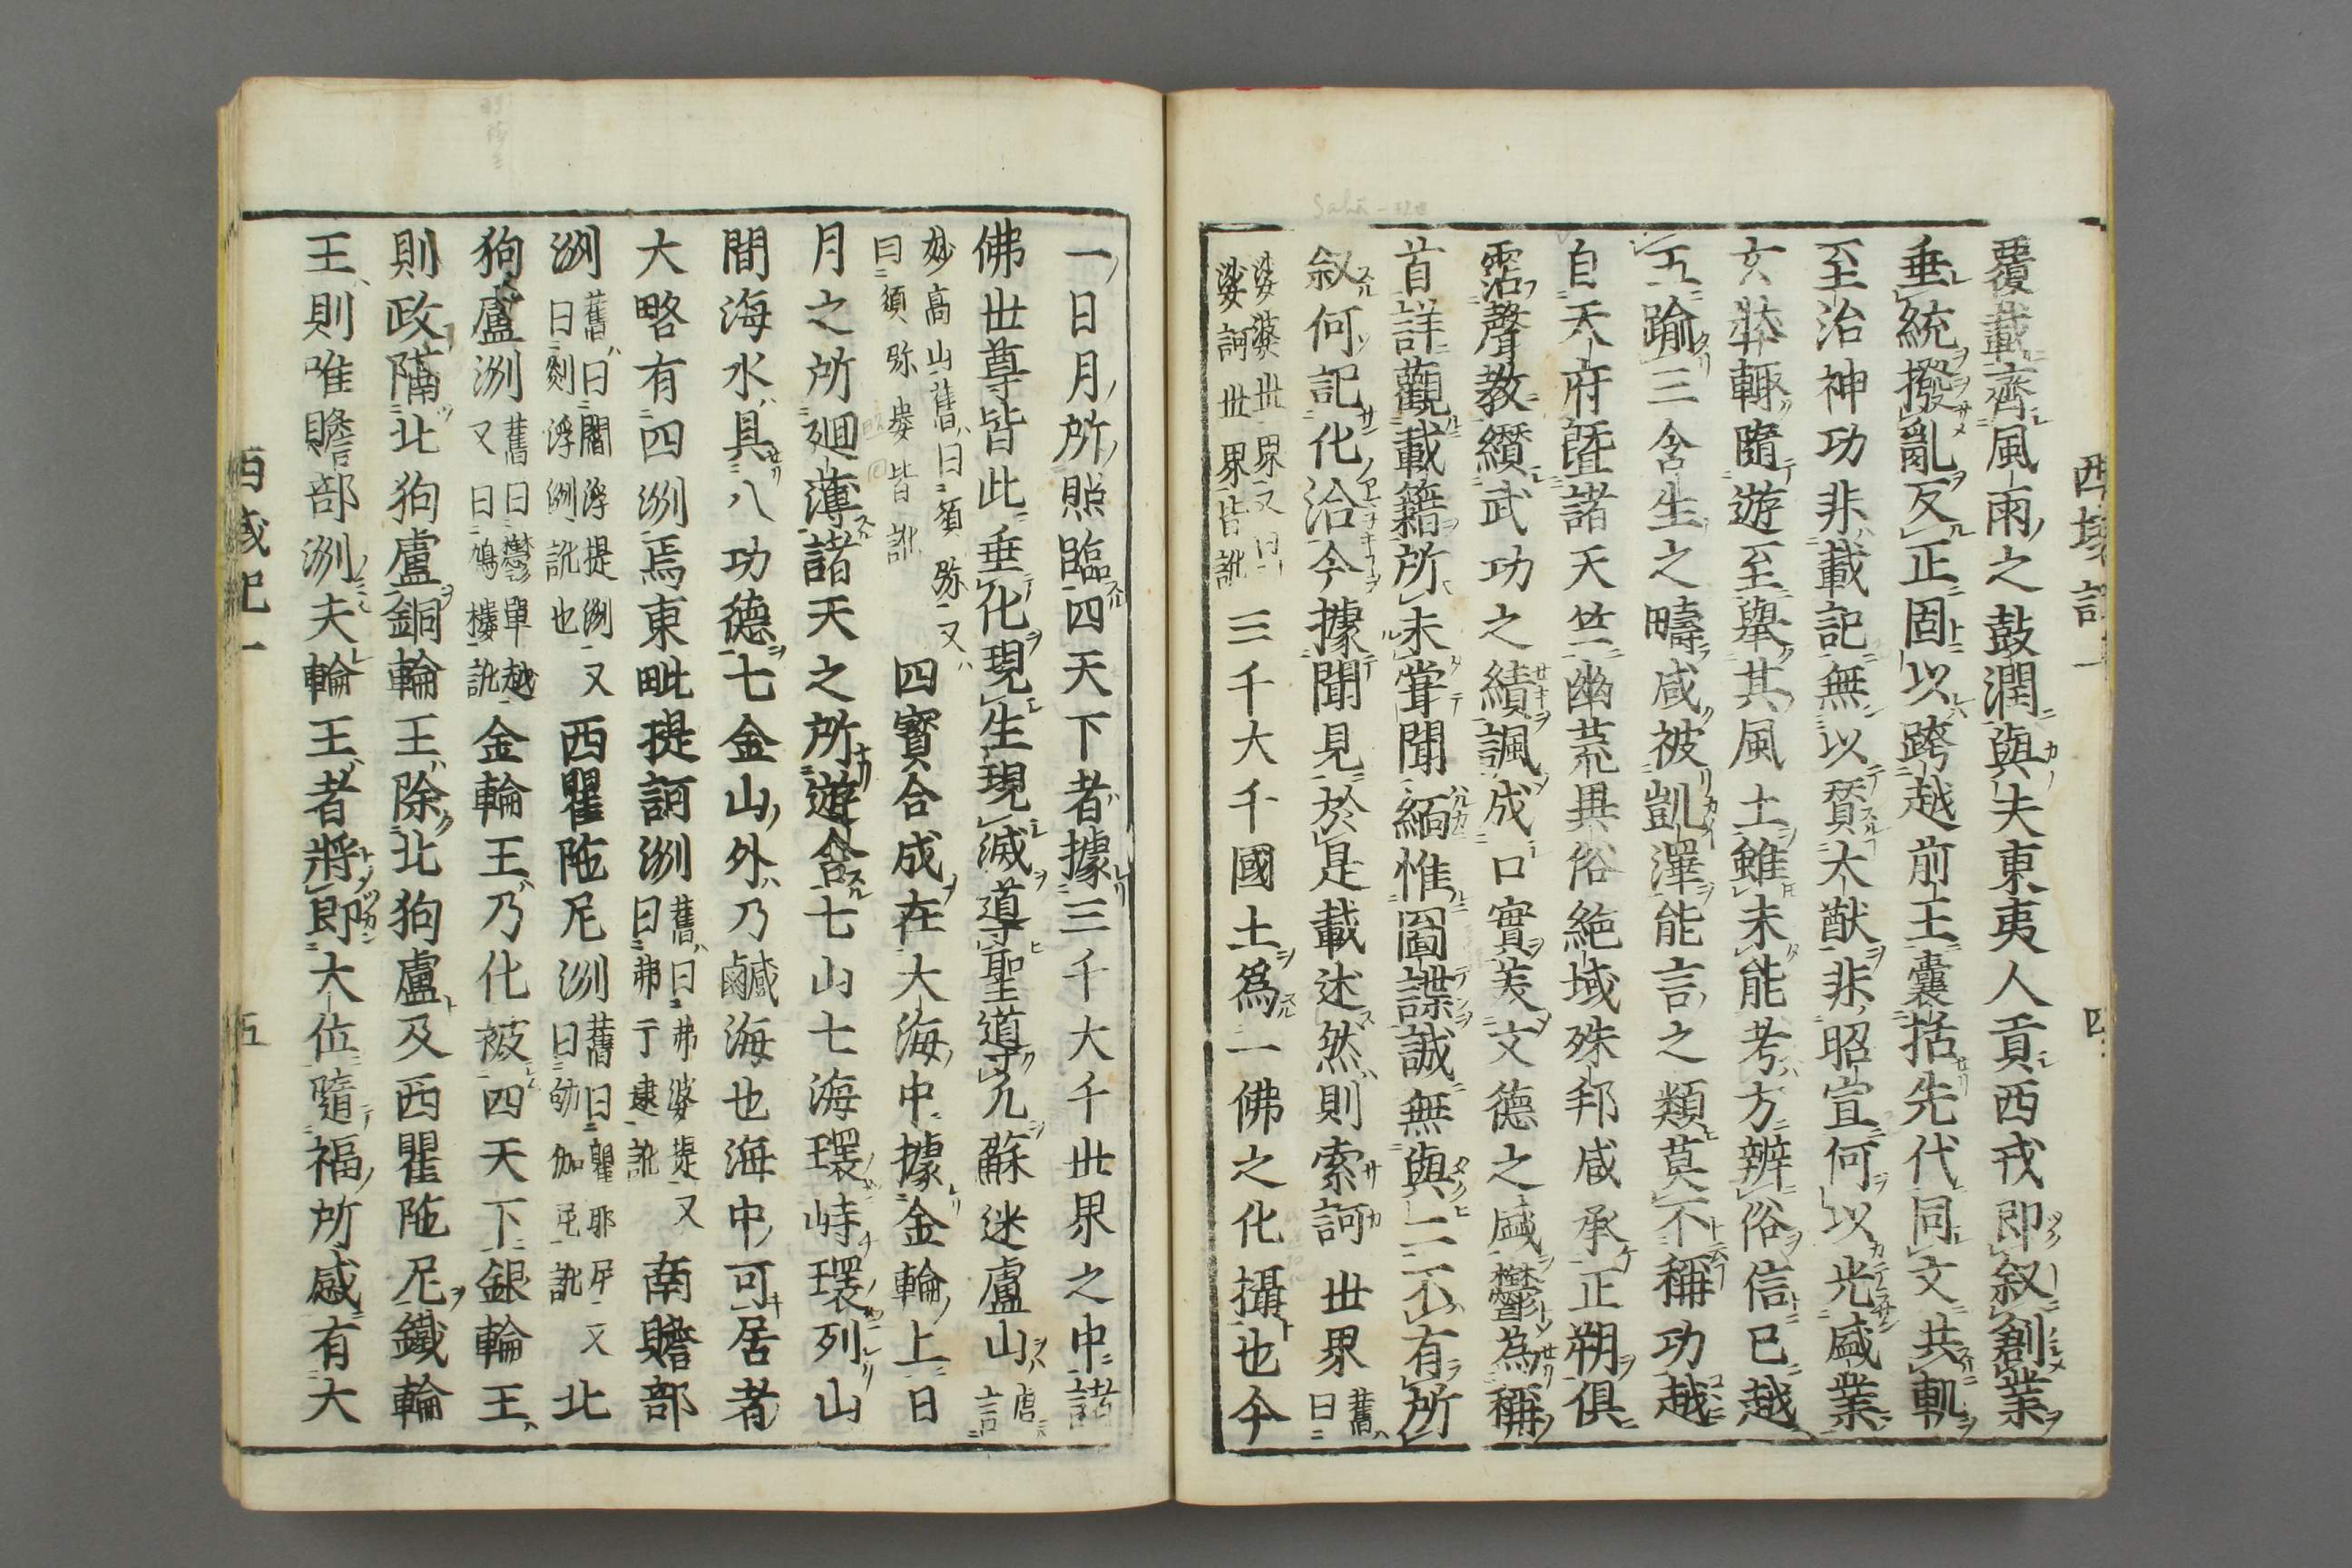 西域記一 四
覆載齊風雨之鼓潤與夫東夷人貢西戎即叙創業
垂統撥亂反正固以跨越前王囊括先代同文共軌
至治神功非載記無以贊大猷非昭宣何以光盛業
玄奘輒隨遊至舉其風土雖未能考方辨俗信已越
五踰三含生之疇咸被凱澤能言之類莫不稱功越
自天府曁諸天竺幽荒異俗絶域殊邦咸承正朔俱
霑聲教纉武功之績諷成口實美文德之盛鬱為稱
首詳觀載籍所未甞聞緬惟圖諜誠無與二不有所
叙何記化洽今據聞見於是載述然則索訶世界舊曰
娑婆世界又曰娑訶世界皆訛三千大千國土爲一佛之化攝也今
一日月所照臨四天下者據三千大千世界之中諸
佛世尊皆此垂化現生現滅導聖導凡蘇迷盧山唐言
妙高山舊曰須弥又曰須弥婁皆訛四寳合成在大海中據金輪上日
月之所廻薄諸天之所遊舎七山七海環峙環列山
間海水具八功德七金山外乃鹹海也海中可居者
大略有四洲焉東毗提訶洲舊曰弗婆提又曰弗于逮訛南贍部
洲舊曰閻浮提洲又曰剡浮洲訛也西瞿陁尼洲舊曰瞿耶尼又曰劬伽尼訛北
狗盧洲舊曰鬱單越又曰鳩樓訛金輪王乃化被四天下銀輪王
則政隔北狗盧銅輪王除北狗盧及西瞿陁尼鐵輪
王則唯贍部洲夫輪王者將即大位隨福所感有大
西域記一 五